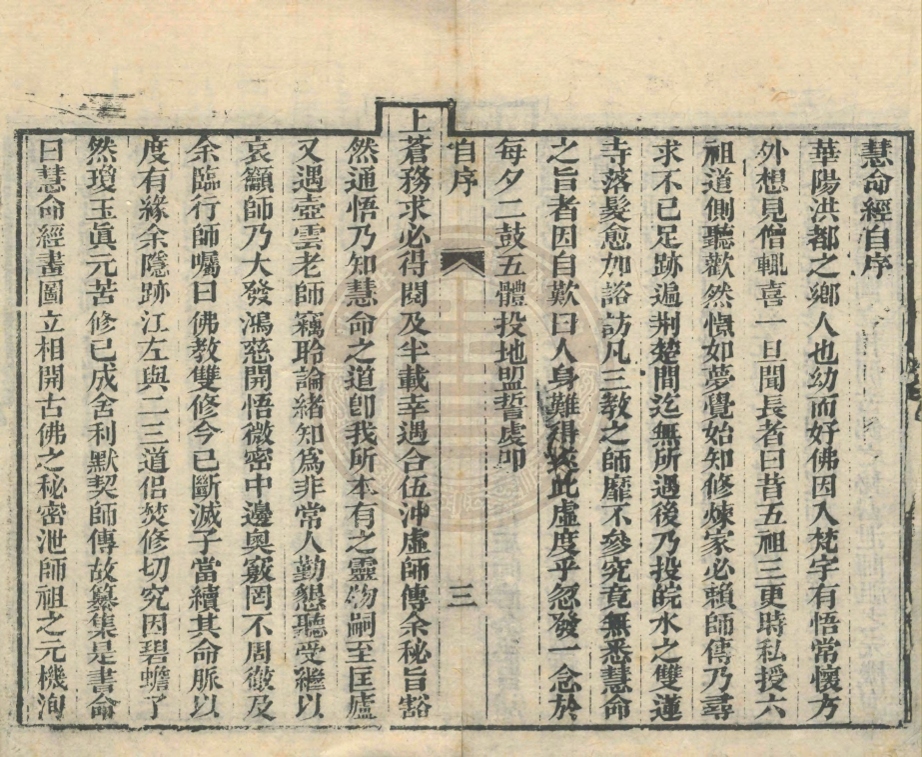 慧命經自序
華陽洪都之鄉人也幼而好佛因入梵宇有悟常懷方
外想見僧輒喜一旦聞長者曰昔五祖三更時私授六
祖道側聽歡然愼如夢覺始知修煉家必賴師傳乃尋
求不已足跡遍荆楚間迄無所遇後乃投皖水之雙蓮
寺落髮愈加諮訪凡三教之師靡不參究竟無悉慧命
之旨者因自歎曰人身難得遂此虛度乎忽發一念於
每夕二鼓五體投地盟誓虔叩
自序
三
上蒼務求必得閱及半載幸遇合伍沖虛師傳余秘旨豁
然通悟乃知慧命之道卽我所本有之靈物嗣至匡廬
又遇壺雲老師竊聆論緒知爲非常人勤懇聽受繼以
哀籲師乃大發鴻慈開悟微密中邊奧竅罔不周徹及
余臨行師囑曰佛教雙修今已斷滅子當續其命脈以
度有緣余隱跡江左與二三道侶焚修切究因碧蟾了
然瓊玉眞元苦修已成舍利默契師傳故纂集是書命
曰慧命經畵圖立相開古佛之秘密泄師祖之元機洵